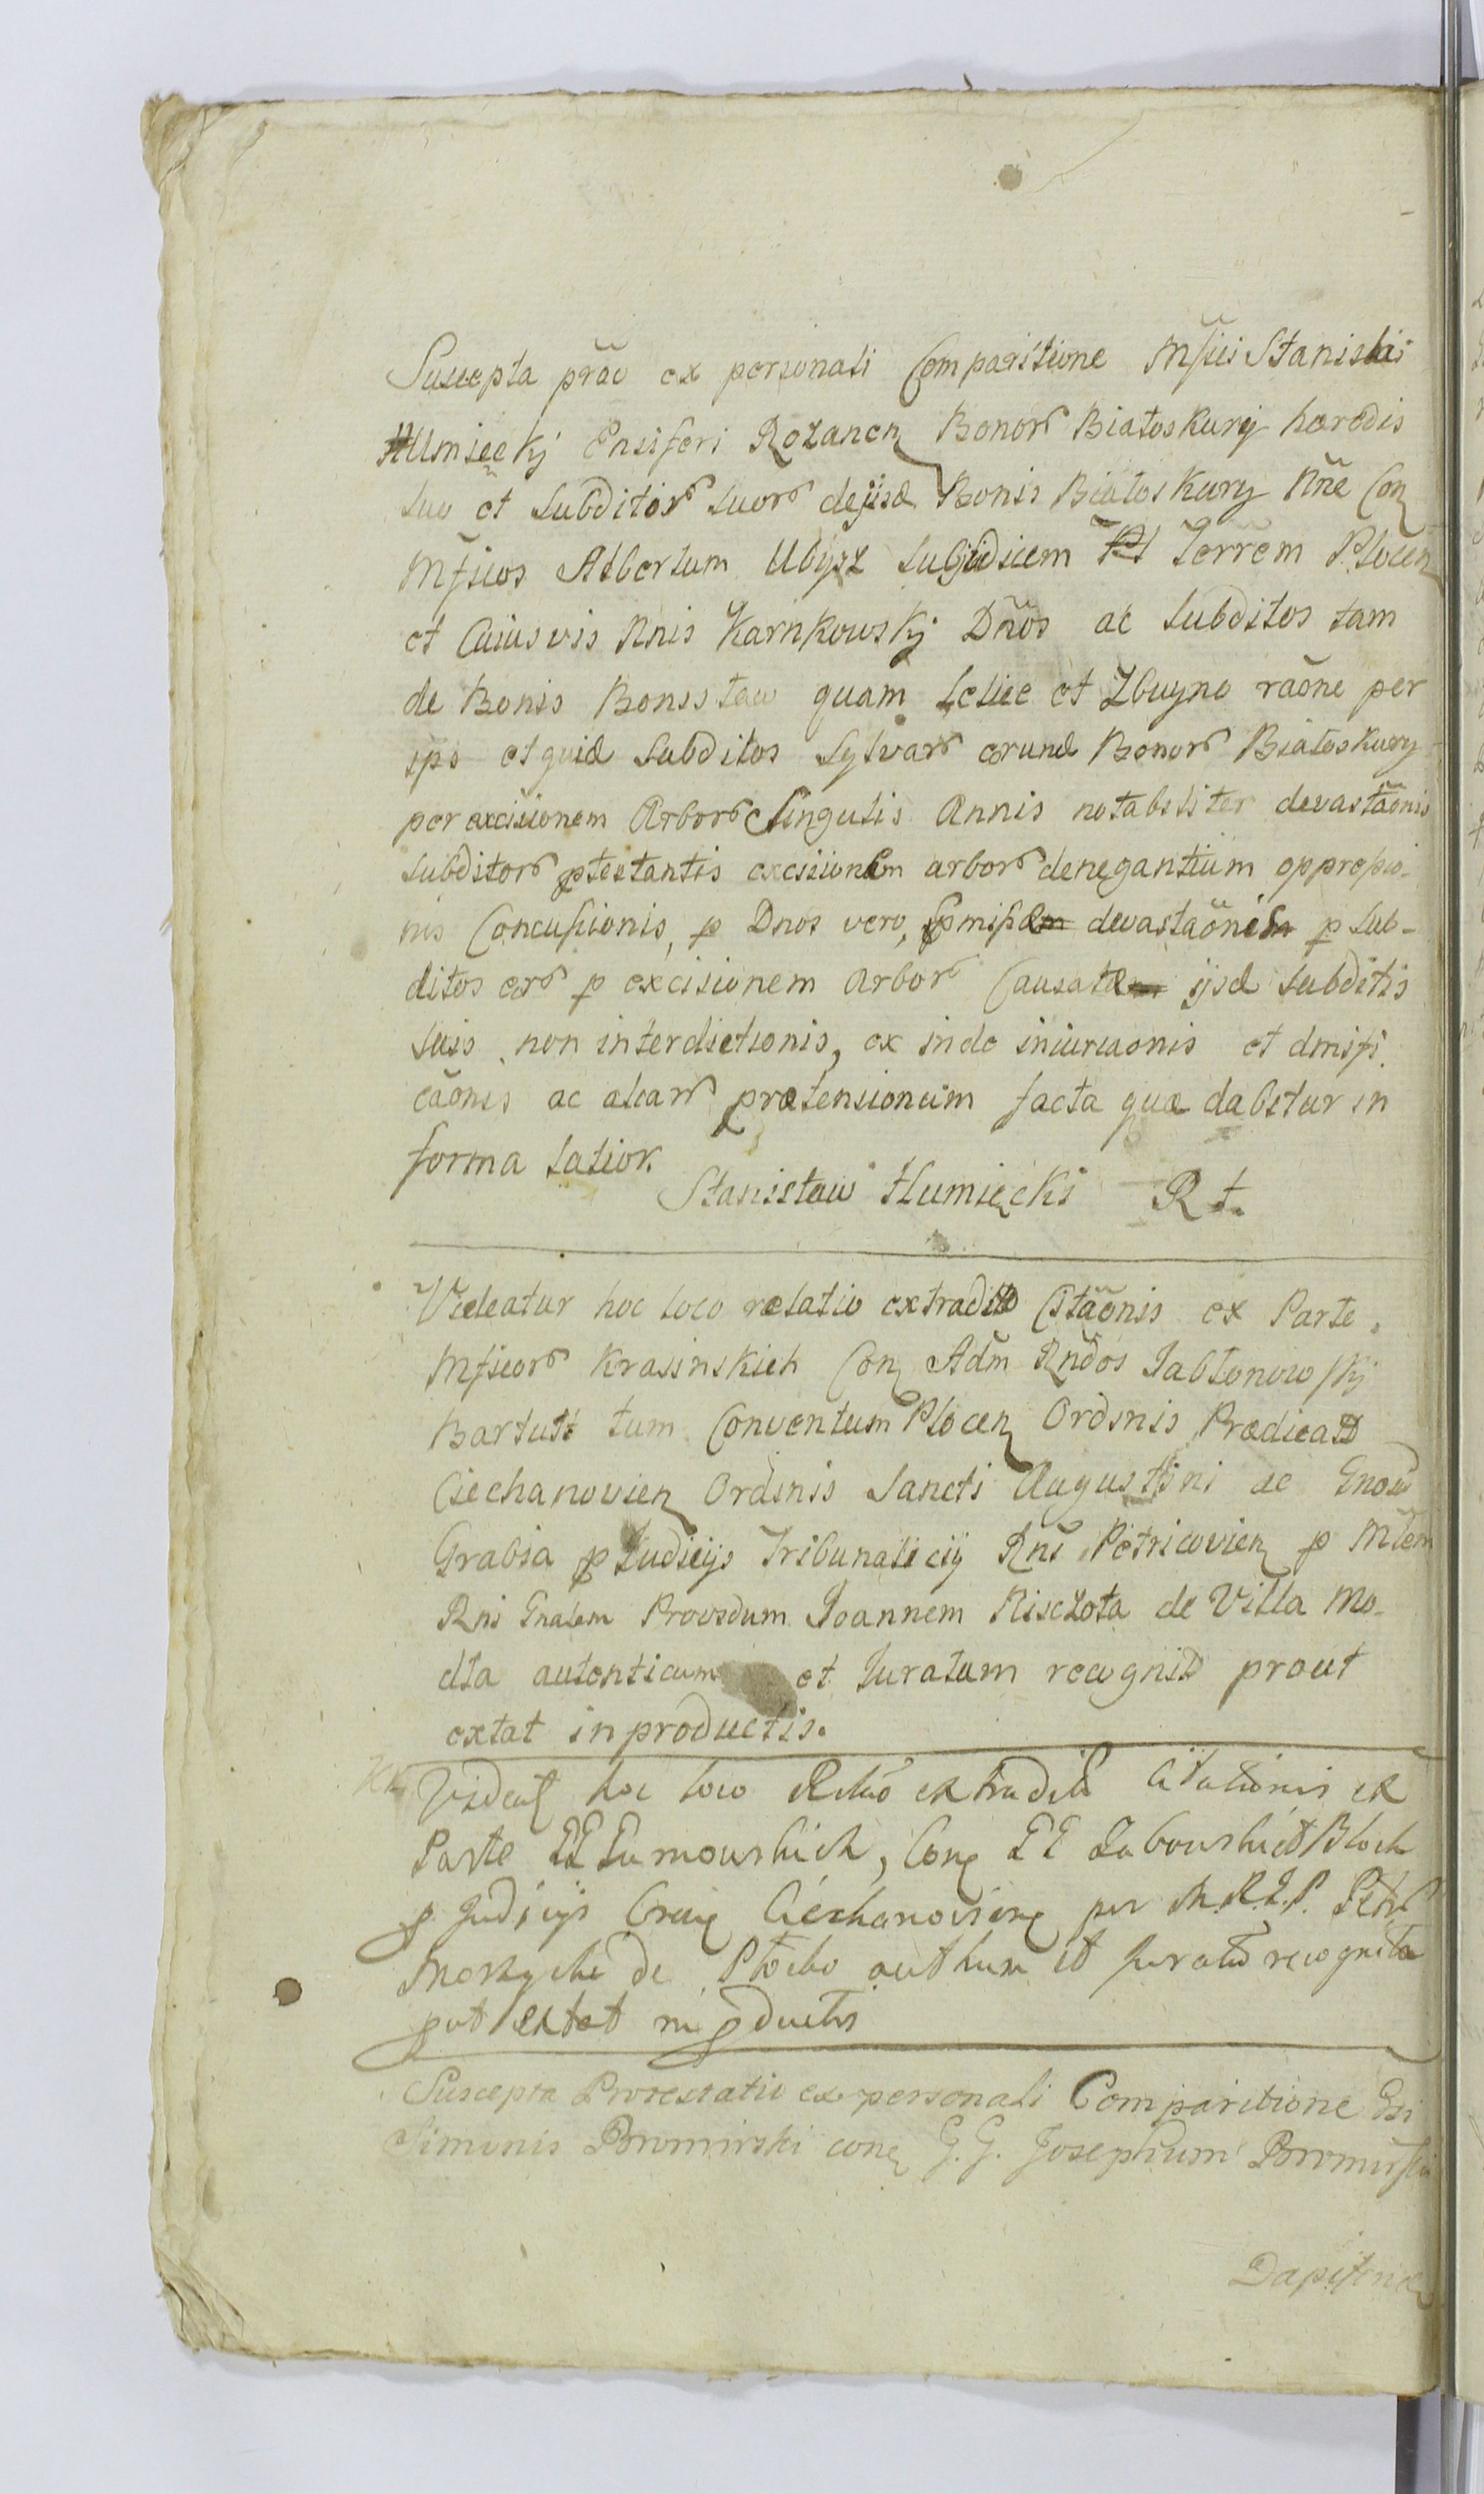 Suscepta prao ex personali Comparitione Mfici Stanislai
Humiecky Ensiferi Rozanen Bonor Białoskury haeredis
suo et subditor suor de ijsd Bonis Białoskury Nñe Con
Mficos Albertum Ubysz subjudicem Terrem Plocen
et Cuiusvis Nnis Karnkowskj Dños ac subditos tam
de Bonis Bonisław quam Lelice et Zbuyno raõne per
ips et quid subditos sylvar eorund Bonor Białoskury
per excisionem Arbor Singulis Annis notabiliter devastaõnis
subditor ptestantis excisionem arbor denegantium oppressio-
nis Concussionis, p Dnos vero, devastaõnis p sub-
ditos eor p excisionem arbor Causata ijsd subditis
suis non interdictionis, ex inde iniuriaonis et dmifi-
caõnis ac aliar praetensionum facta quae dabitur in
forma latior.
Stanisław Humięcki R t.
Videatur hoc loco relatio extradit Citaõnis ex Parte
Mficor Krasinskich Con Adm Rndos Jabłonowskj
Bartult tum Conventum Plocen Ordinis Praedicat
Ciechanovien Ordinis Sancti Augustini de Gnow
Grabia p Judicijs Tribunalicij Rni Petricovien p Mlem
Rni Gnalem Providum Joannem Niscżota de Villa Mo-
dła autenticum et Juratum recognit prout
extat in productis.
Videat hoc loco Relao extradit Citationis ex
Parte GG Sumowskich, Con GG Zabowskich Bloch
p Judicijs Ciechanoviens per M.R.G.P. Petr
de Płocko authum et juratu recognita
put extat in pductis
Suscepta Protestatio ex personali Comparitione Gsi
Simonis Bromirski con G. G. Josephum Bromirski
Dapifend